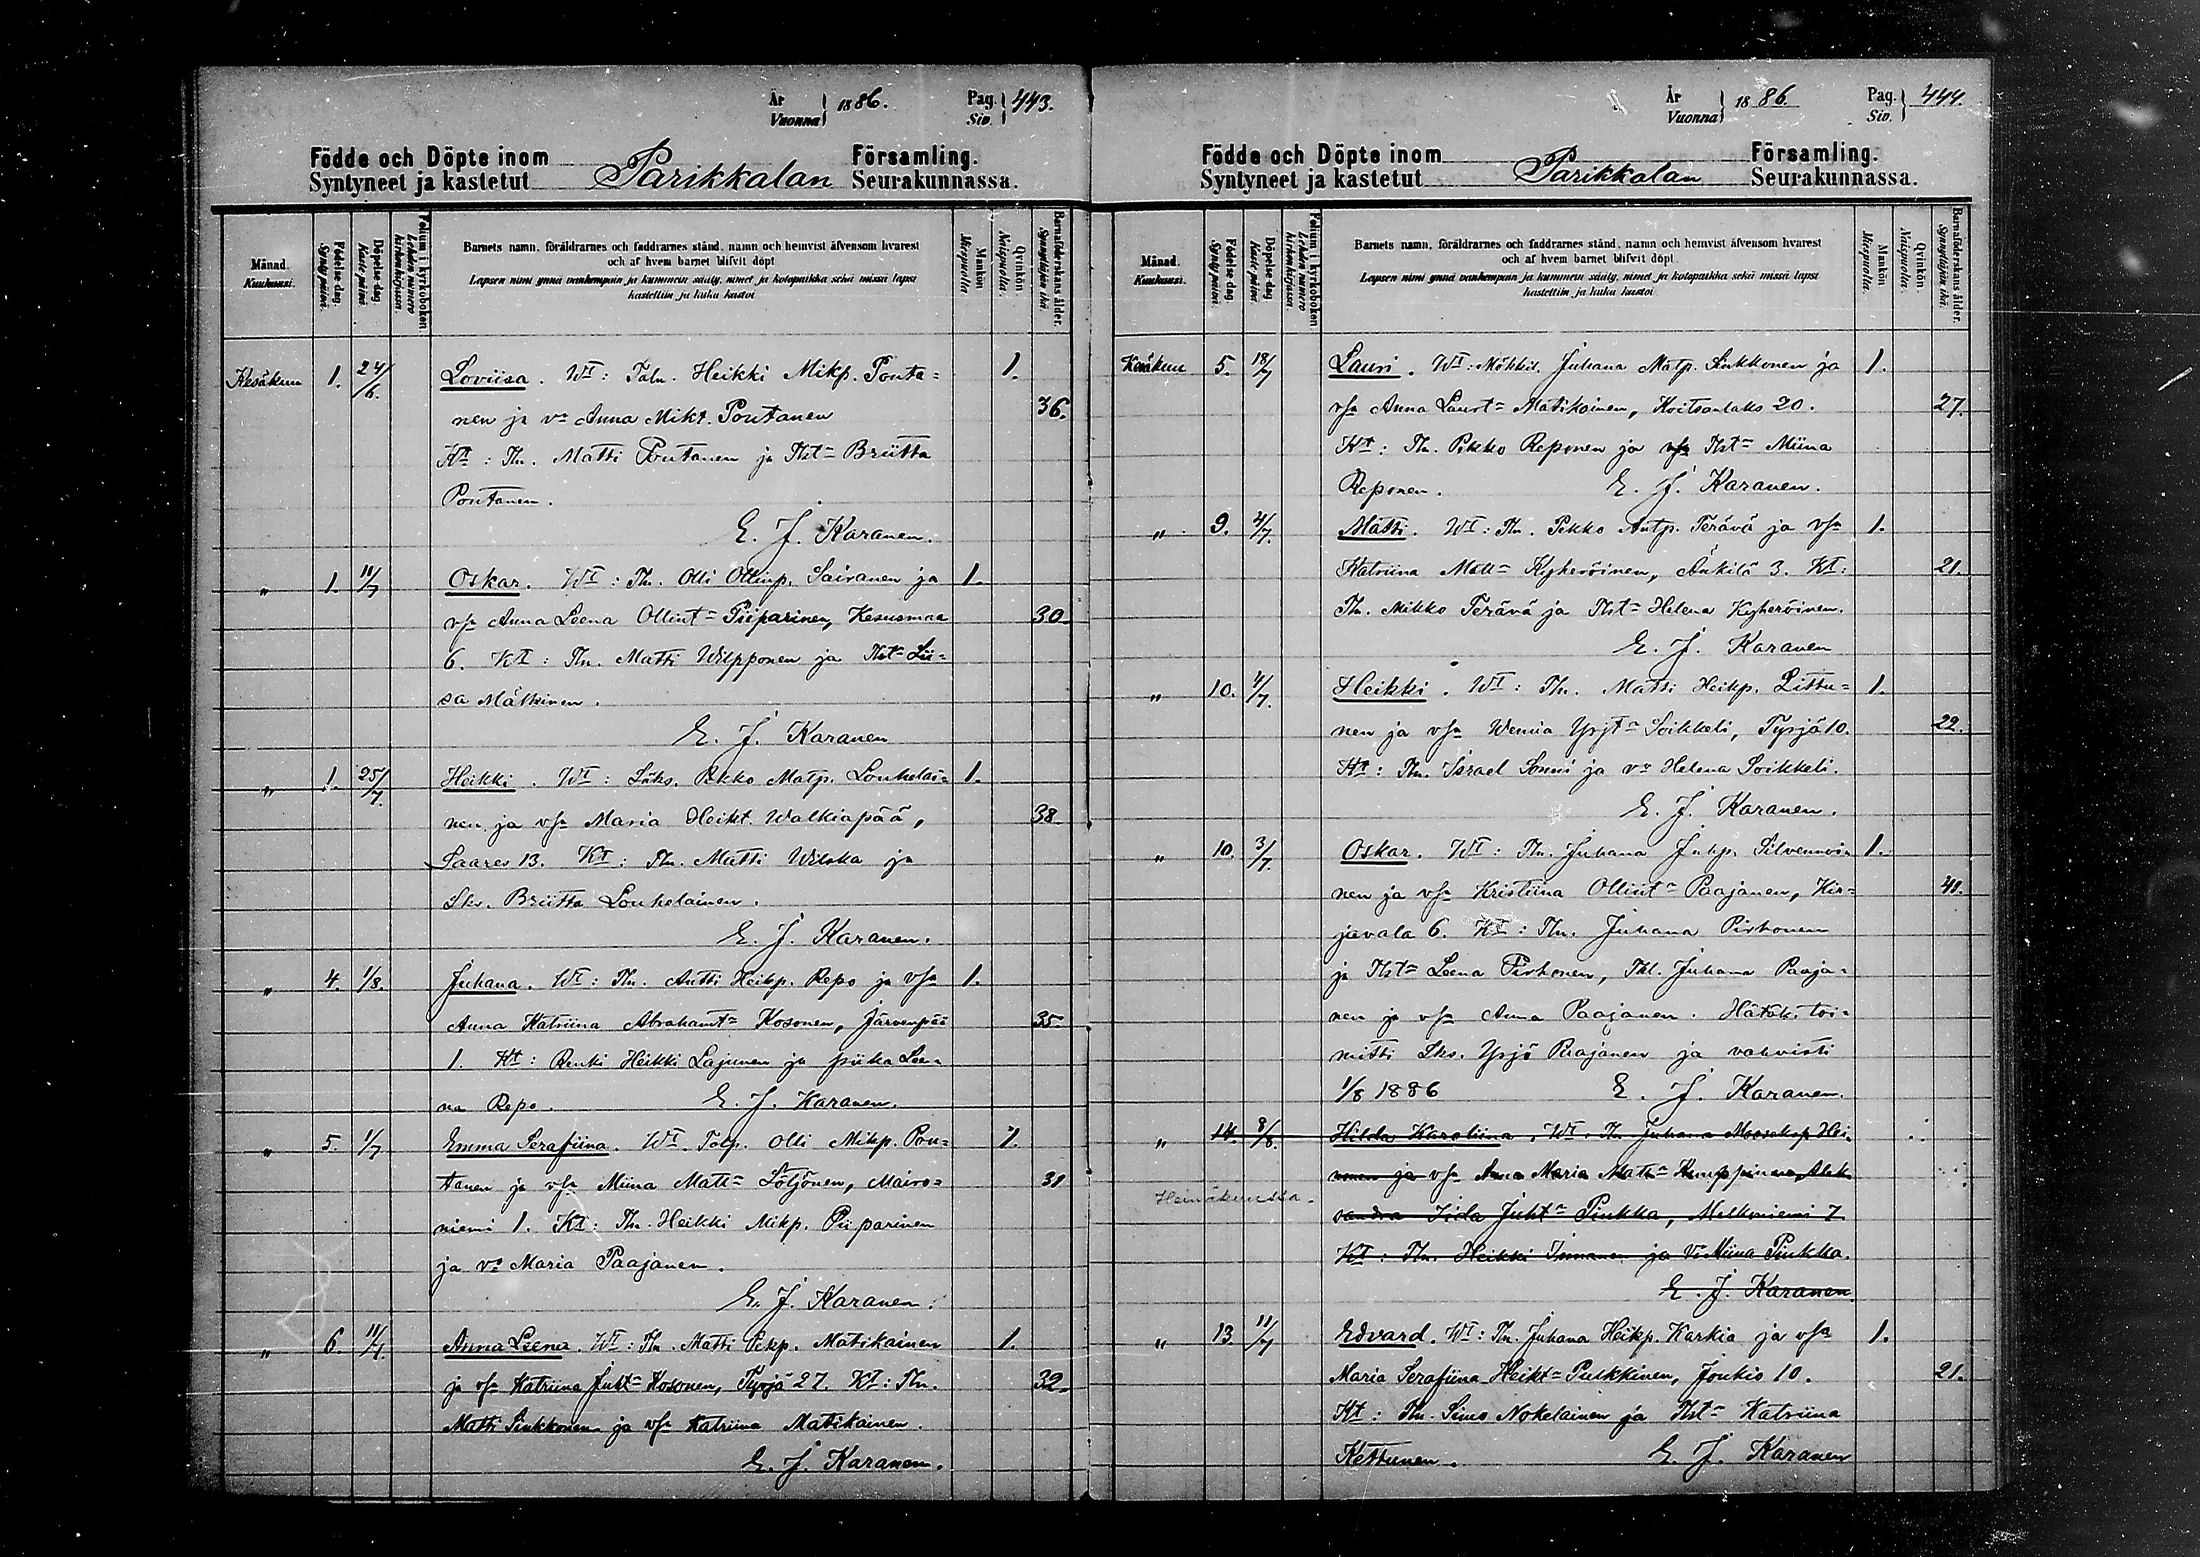 År
Vuonna
1886.
Pag.
Siv.
443.
Födde och Döpte inom
Syntyneet ja kastetut
Parikkalan
Församling.
Seurakunnassa.
Månad.
Kuukausi.
Födelse-dag.
Syntypäivä.
Döpelse-dag
Kaste-päivä.
Folium i kyrkoboken.
Lehden numero kirkonkirjassa.
Barnets namn, föräldrarnes och faddrarnes stånd, namn och hemvist äfvensom hvarest
och af hvem barnet blifvit döpt
Lapsen nimi ynnä vanhempain ja kummein sääty, nimet ja kotopaikka sekä missä lapsi
kastettiin ja kuka kastoi
Mankön
Miespuolia
Qvinkön.
Naispuolia.
Barnaföderskans ålder.
Synnyttäjän ikä.
Kesäkuu 1. 24/6. Loviisa. Wt: Taln. Heikki Mikp. Ponta= 1.
nen ja va Anna Mikt. Pontanen 36.
Kt: Tln. Matti Pontanen ja Tlst= Briitta
Pontanen.
E. J. Karanen.
" 1. 11/7 Oskar. Wt: Tln. Olli Ollinp. Sairanen ja 1.
vsa Anna Leena Ollint= Piiparinen, Kesusmaa 30.
6. Kt: Tln. Matti Wilpponen ja Tlst= Lii=
sa Mätkinen.
E. J. Karanen
" 1. 25/7. Heikki. Wt: Lsks. Pekko Matp. Louhelai= 1.
nen ja vsa Maria Heikt. Walkiapää, 38.
Saares 13. Kt: Tln. Matti Wilska ja
Lks. Briitta Louhelainen.
E. J. Karanen.
" 4. 1/8. Juhana. Wt: Tln. Antti Heikp. Repo ja vsa 1.
Anna Katriina Abrahamt= Kosonen, Järvenpää 35.
1. Kt: Renki Heikki Lajunen ja piika Lee=
na Repo. E. J. Karanen.
" 5. 1/7 Emma Serafiina. Wt. Talp. Olli Mikp. Pon= 1.
tanen ja vsa Miina Matt= Löljönen, Mairo= 31
niemi 1. Kt: Tln. Heikki Mikp. Piiparinen
ja va Maria Paajanen.
E. J. Karanen.
" 6. 11/7. Anna Leena. Wt: Tln. Matti Pekp. Matikainen 1.
ja vsa Katriina Juht= Kosonen, Tyrjä 27. Kt: Tln. 32.
Matti Sinkkonen ja vsa Katriina Matikainen.
E. J. Karanen.
År
Vuonna
1886.
Pag.
Siv.
444.
Födde och Döpte inom
Syntyneet ja kastetut
Parikkalan
Församling.
Seurakunnassa.
Månad.
Kuukausi.
Födelse-dag.
Syntypäivä.
Döpelse-dag
Kaste-päivä.
Folium i kyrkoboken.
Lehden numero kirkonkirjassa.
Barnets namn, föräldrarnes och faddrarnes stånd, namn och hemvist äfvensom hvarest
och af hvem barnet blifvit döpt
Lapsen nimi ynnä vanhempain ja kummein sääty, nimet ja kotopaikka sekä missä lapsi
kastettiin ja kuka kastoi
Mankön
Miespuolia.
Qvinkön.
Naispuolia.
Barnaföderskans ålder.
Synnyttäjän ikä.
Kesäkuu 5. 18/7 Lauri. Wt: Mökkil. Juhana Matp. Sinkkonen ja 1.
vsa Anna Laurt= Matikainen, Koitsanlaks 20. 27.
Kt: Tln. Pekko Reponen ja Tlst= Miina
Reponen. E. J. Karanen.
" 9. 4/7. Matti. Wt: Tln. Pekko Antp. Terävä ja vsa 1.
Katriina Matt= Kyheröinen, Änkilä 3. Kt: 21.
Tln. Mikko Terävä ja Tlst= Helena Kyheröinen.
E. J. Karanen
" 10. 4/7. Heikki. Wt: Tln. Matti Heikp. Littu= 1.
nen ja vsa Wennia Yrjt= Soikkeli, Tyrjä 10. 22.
Kt: Tln. Israel Sonni ja va Helena Soikkeli.
E. J. Karanen.
" 10. 3/7. Oskar. Wt: Tln. Juhana Juhp. Silvennoi= 1.
nen ja vsa Kristiina Ollint= Paajanen, Kir= 41.
javala 6. Kt: Tln. Juhana Pirhonen
ja Tlst= Leena Pirhonen, Tkl. Juhana Paaja=
nen ja vsa Anna Paajanen. Hätäk. toi=
mitti Lks. Yrjö Paajanen ja vahvisti
1/8 1886 E. J. Karanen.
" 14. 8/8. Hilda Karoliina. Wt: Tln Juhana Hei=
nonen ja vsa Anna Maria Matt= Kemppinen, Alek
Heinäkuussa.
sandra Iida Juht= Pinkka, Melkoniemi 7
Kt: Tln. Heikki Immonen ja va Miina Pinkka.
E. J. Karanen.
" 13. 11/7 Edvard. Wt: Tln. Juhana Heikp. Karkia ja vsa 1.
Maria Serafiina Heikt= Pulkkinen, Joukio 10. 21.
Kt: Tln. Simo Nokelainen ja Tlst= Katriina
Kettunen. E. J. Karanen